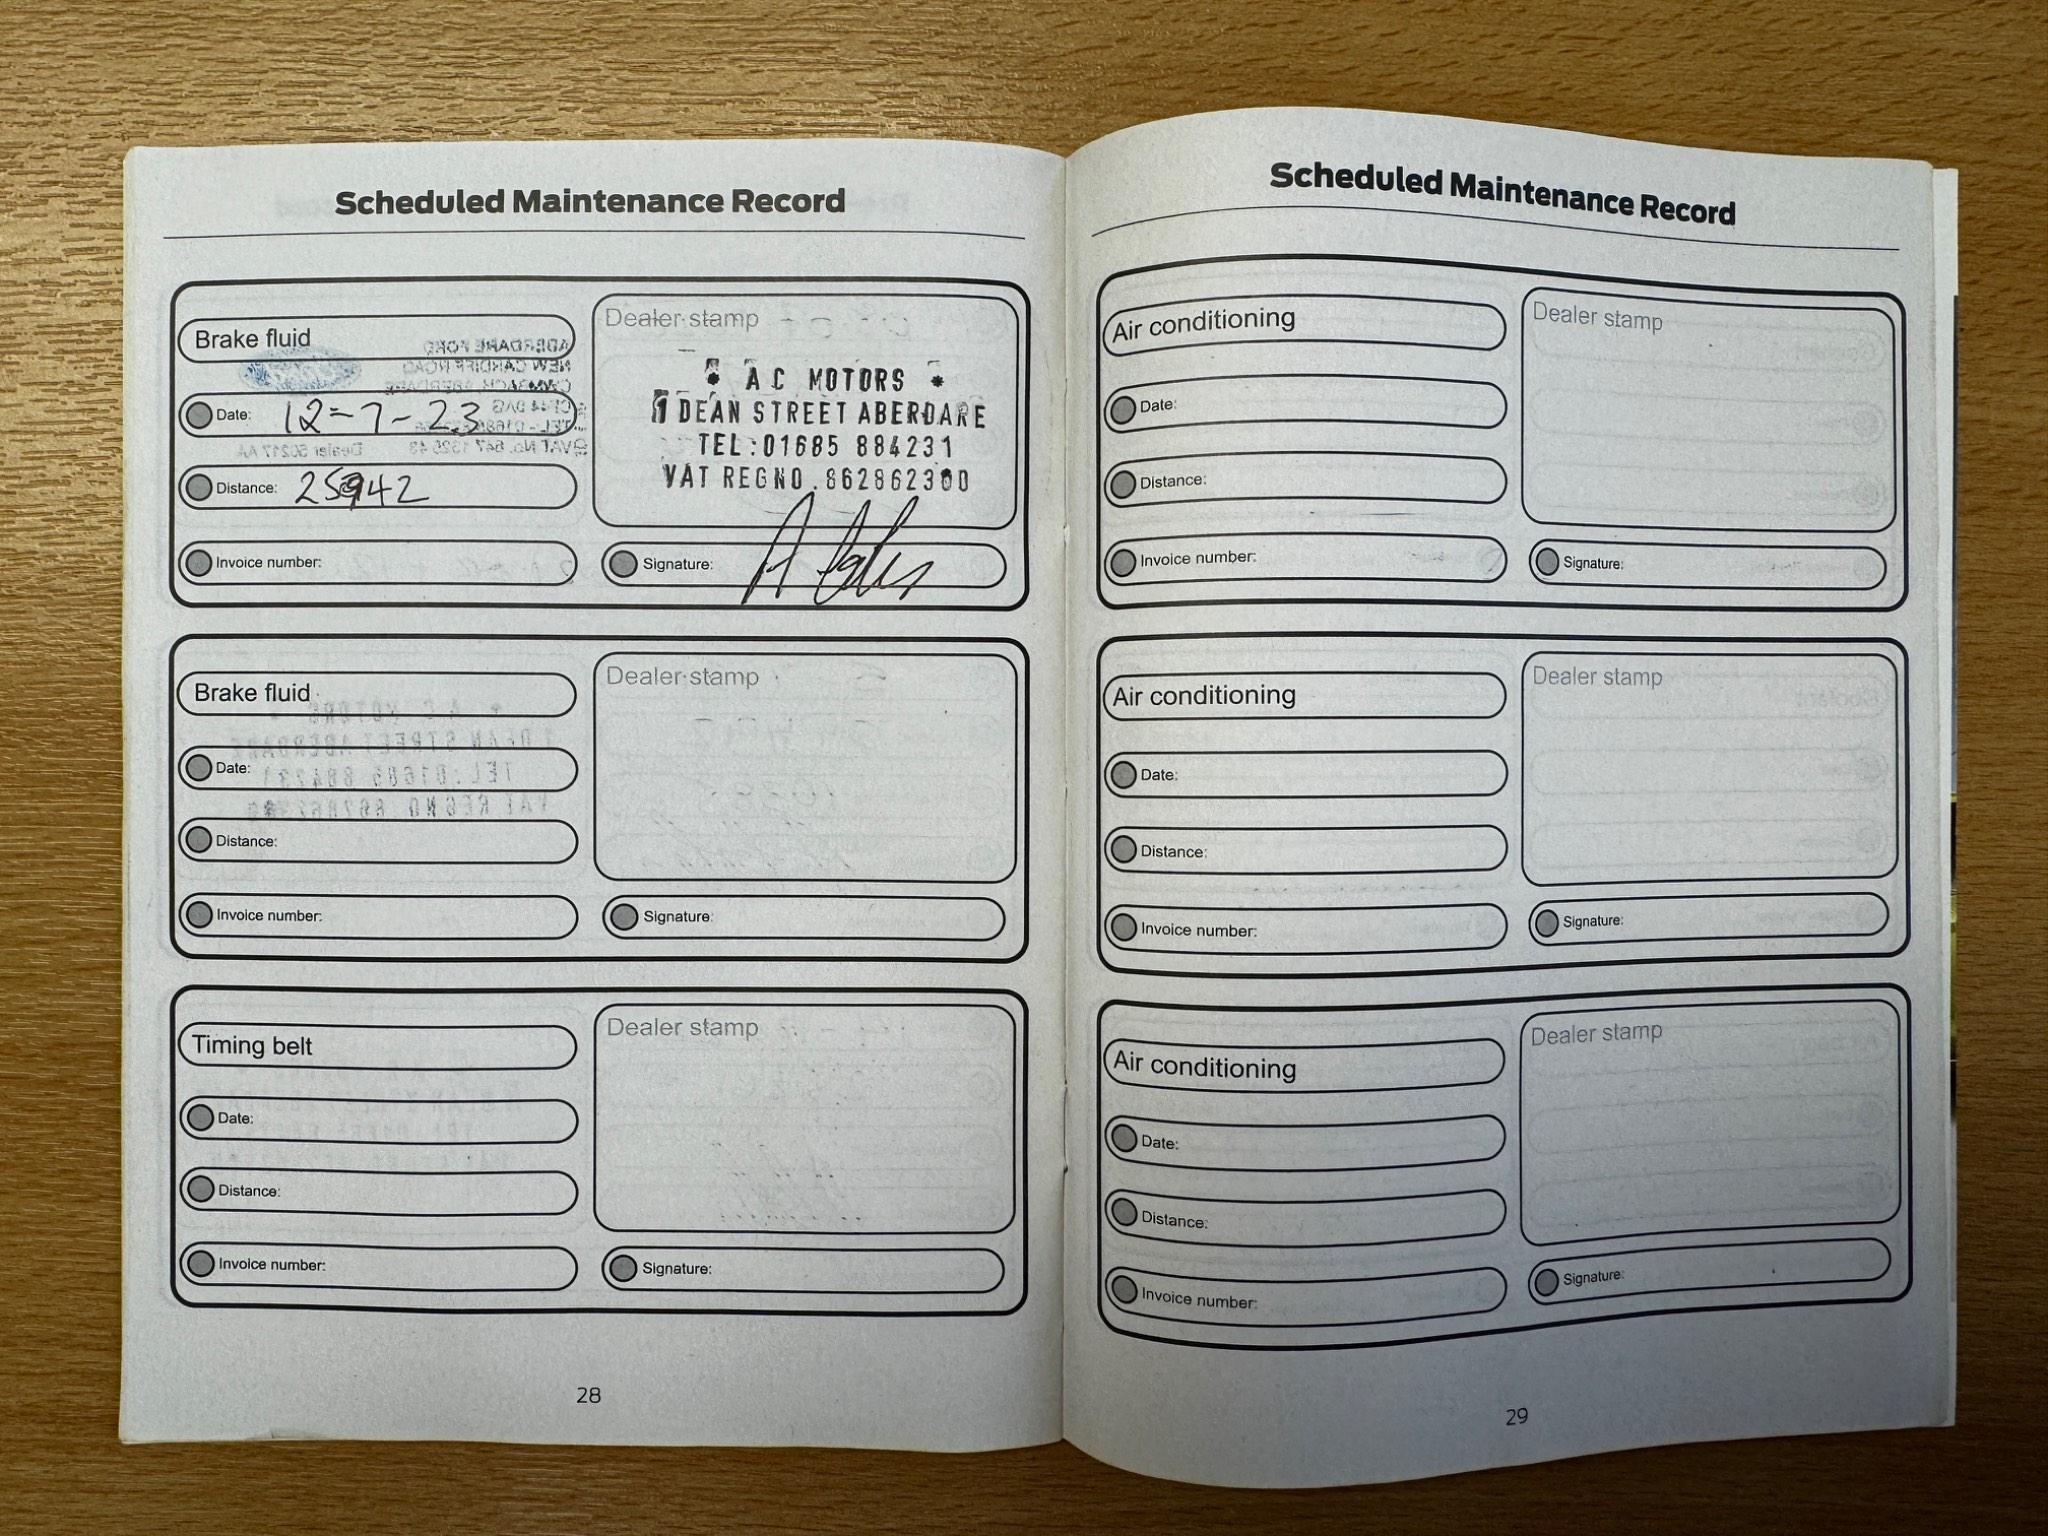 Scheduled Maintenance Record
Brake fluid
Dealer stamp
* A C MOTORS *
1 DEAN STREET ABERDARE
TEL:01685 884231
VAT REGNO.862862300
Date: 12-7-23
Distance: 25942
Invoice number:
Signature:
Brake fluid
Dealer stamp
Date:
Distance:
Invoice number:
Signature:
Timing belt
Dealer stamp
Date:
Distance:
Invoice number:
Signature:
28
Scheduled Maintenance Record
Air conditioning
Dealer stamp
Date:
Distance:
Invoice number:
Signature:
Air conditioning
Dealer stamp
Date:
Distance:
Invoice number:
Signature:
Air conditioning
Dealer stamp
Date:
Distance:
Invoice number:
Signature:
29